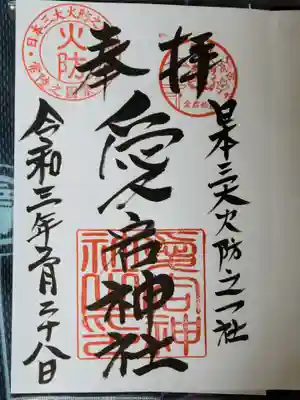 奉拝
日本三大火防之一社
愛宕神社
令和三年五月二十八日
日本三大火防之
火防
愛宕神